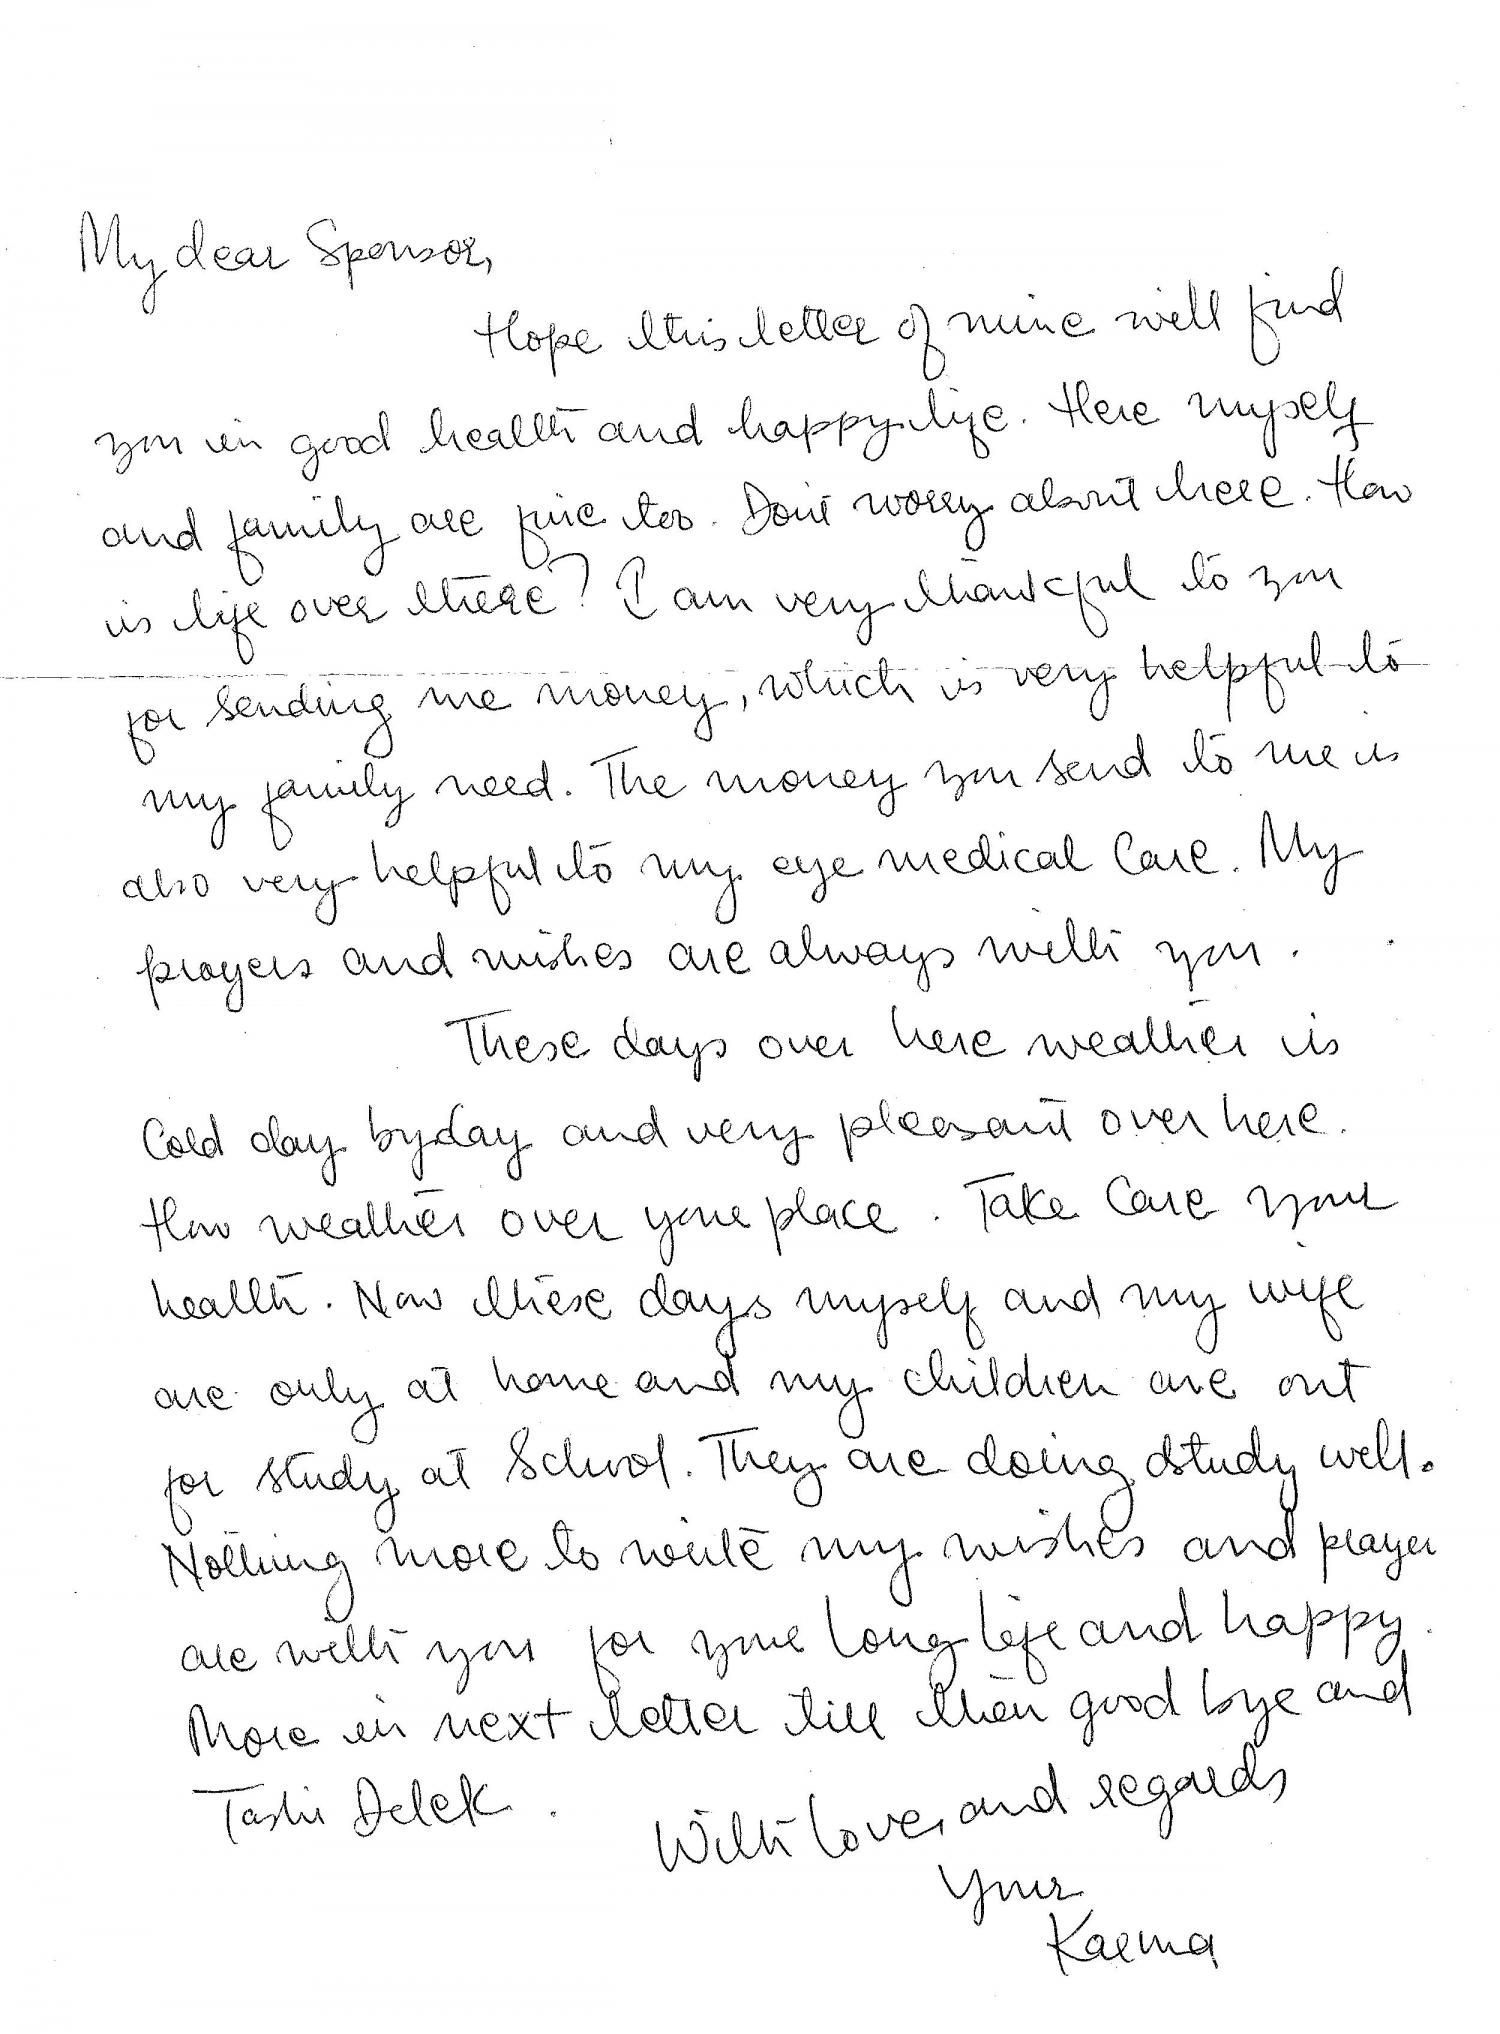 My dear Sponsor,
Hope this letter of mine will find
you in good health and happy life. Here myself
and family are fine too. Don't worry about here. How
is life over there? I am very thankful to you
for sending me money, which is very helpful to
my family need. The money you send to me is
also very helpful to my eye medical Care. My
prayers and wishes are always with you.
These days over here weather is
Cold day by day and very pleasant over here.
How weather over your place. Take Care your
health. Now these days myself and my wife
are only at home and my children are out
for study at School. They are doing study well.
Nothing more to write my wishes and prayer
are with you for your long life and happy.
More in next letter till then good bye and
Tashi Delek.
With love, and regards
Your
Karma